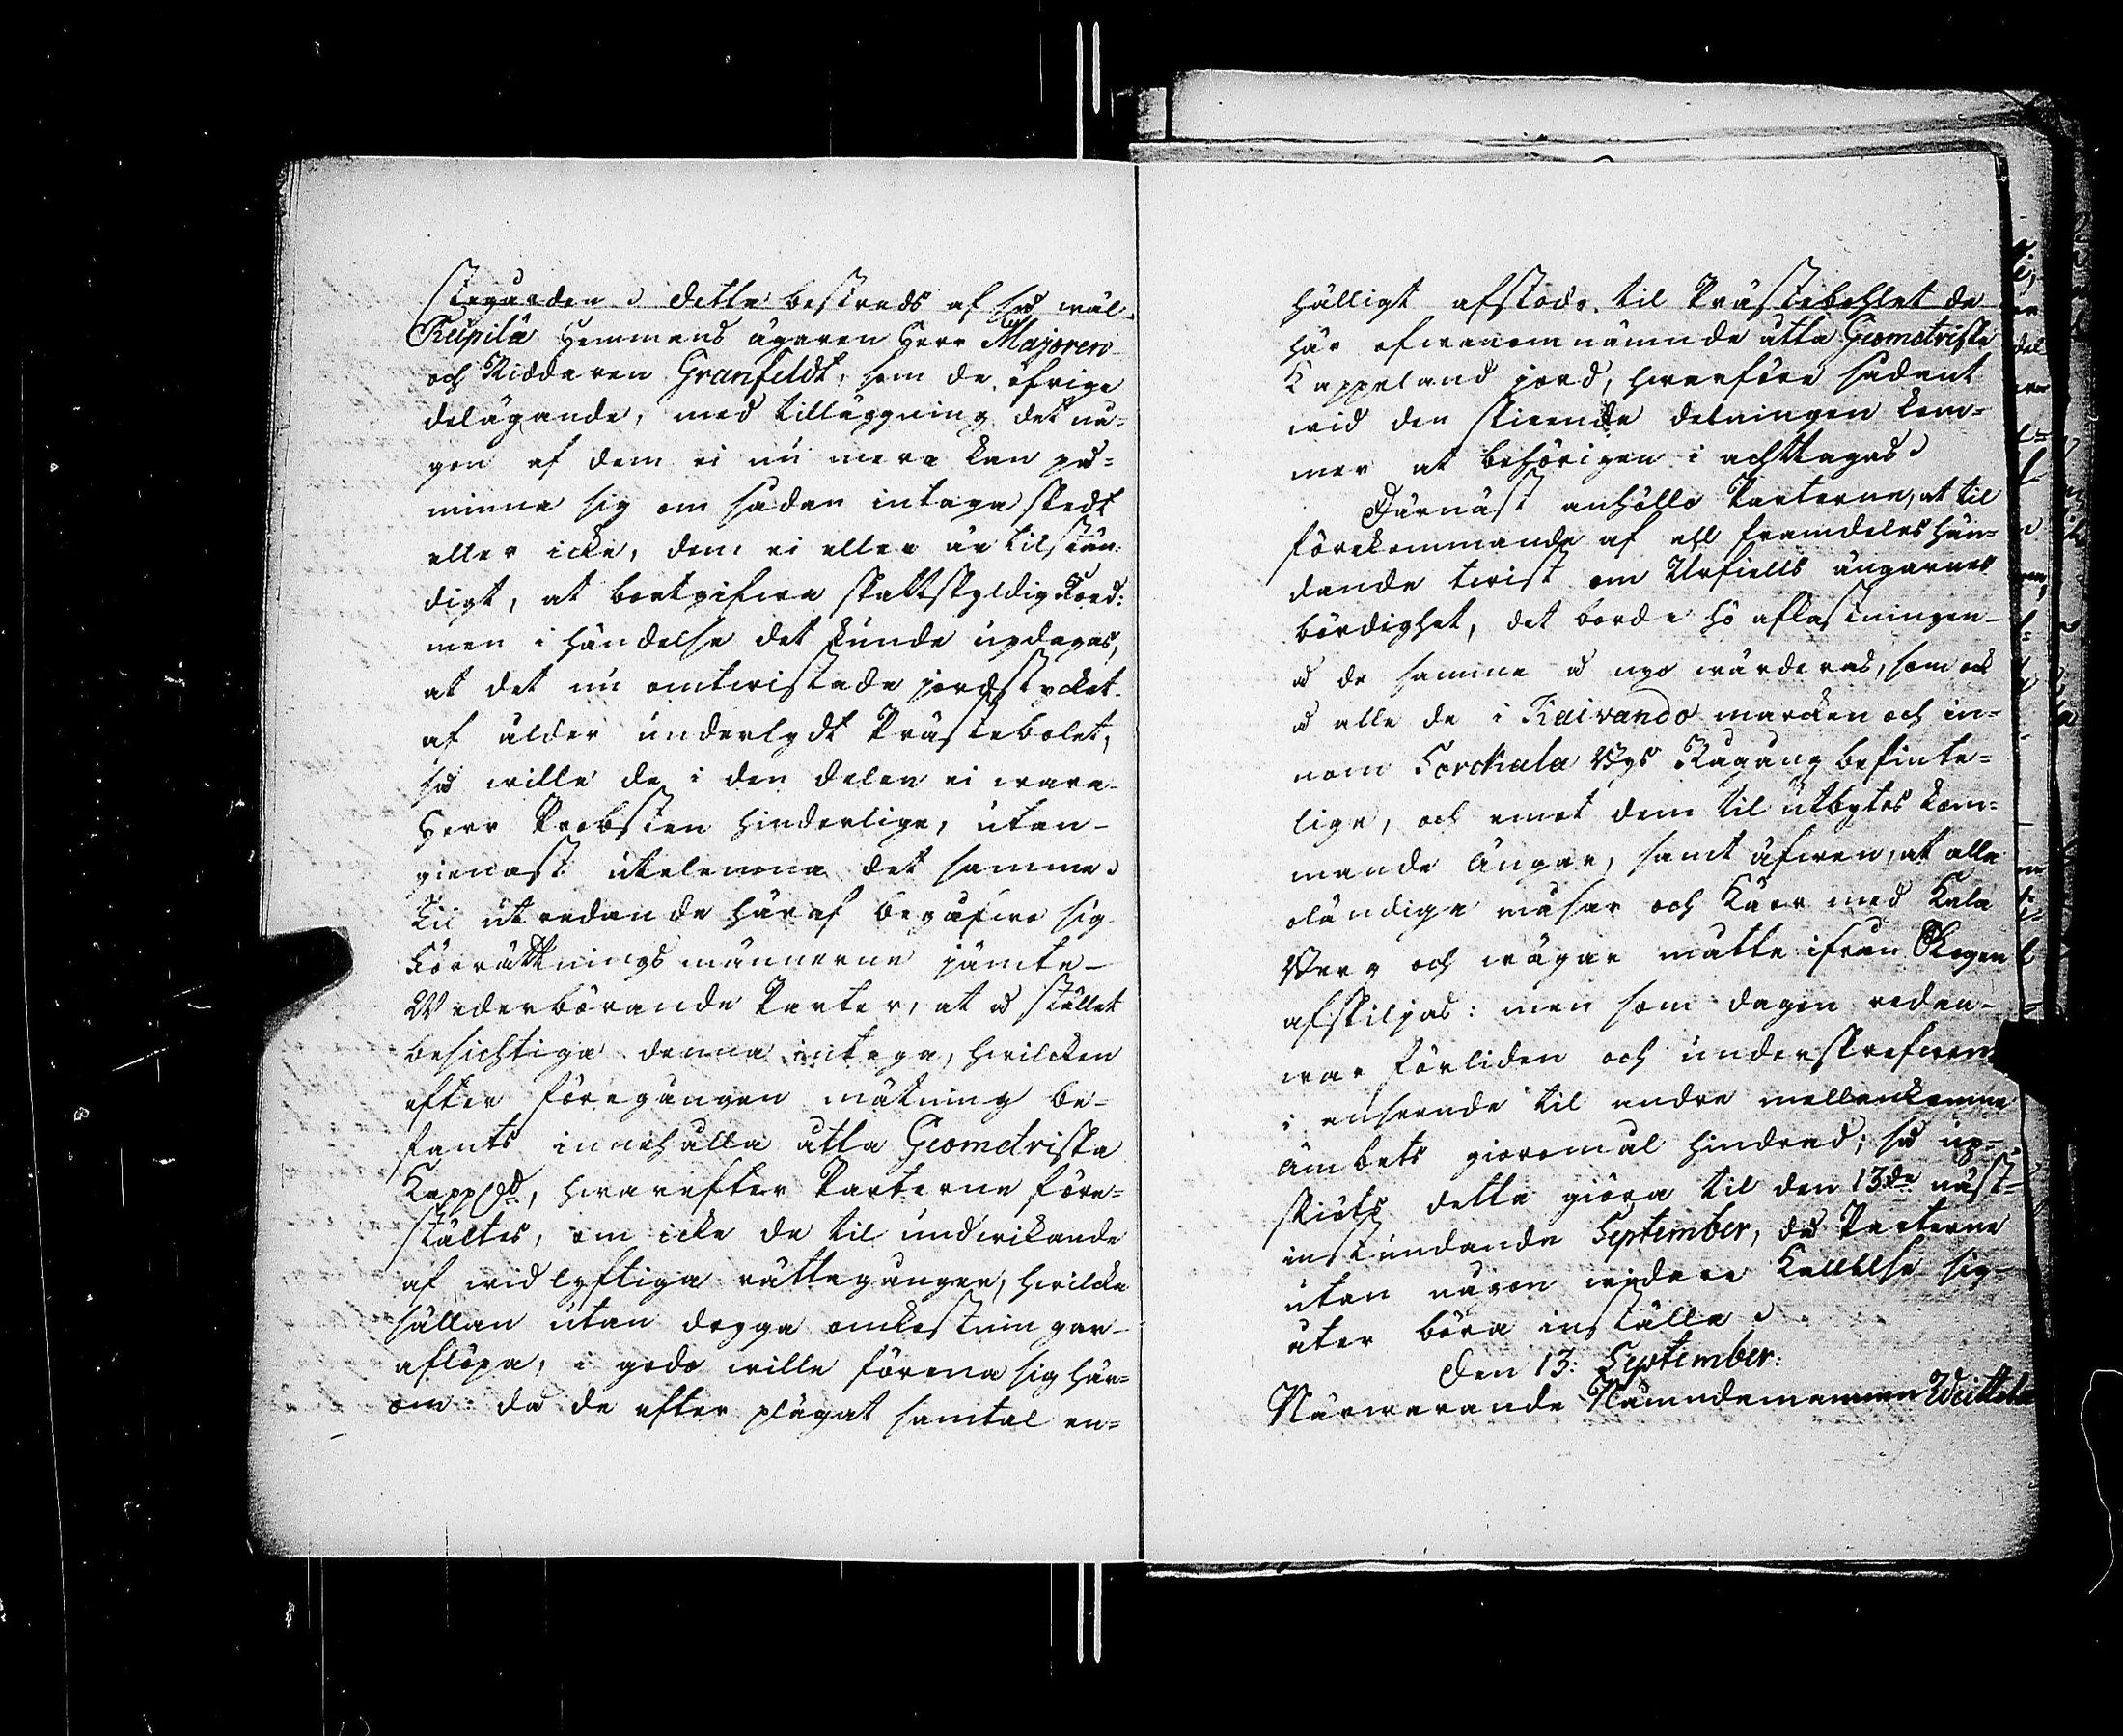 stegården. detta bestreds af så wäl
Keüpilä Hemmans ägaren Herr Majoren
och Riddaren Granfeldt, som de öfrige
delägande, med tilläggning det nå-
gon af dem ei nu mera kan på-
minna sig om sådan intaga skedt
eller icke, dem ei eller är tilstän-
digt, at bortgifwa skattskyldig Jord:
men i händelse det kunde updagas,
at det nu omtwistade jordstycket
af ålder underlydt Prästebolet,
så wille de i den delen ei wara
Herr Probsten hinderlige, utan
gienast utelemna det samma.
Til utredande häraf begåfwo sig
Förrättningsmännerne jämte
Wederbörande Parter, at å stället
besichtiga denna intaga, hwilcken
efter föregången mätning be-
fants innehålla åtta Geometriska
Kappld, hwarefter Parterne före-
stältes, om icke de til undwikande
af widlyftiga rättegångar, hwilcka
sällan utan dryga omkostningar
aflöpa, i godo wille förena sig här-
om: då de efter plägat samtal en-
hälligt afstodo til Prästebohlet de
här ofwanomnämnde åtta Geometriska
Kappeland jord, hwarföre sådant
wid den skieende delningen kom-
mer at behörigen i acht tagas.
Därnäst anhöllo Parterne, at til
förekommande af all framdeles hän-
dande twist om Urfiells ängarnes
bördighet, det borde hö aflastningen
å de samma å nyo wärderas, som ock
å alla de i Kaivando marcken och in-
nom Sorchala Bys Rågång befinte-
lige, och emot dem til utbytes kom-
mande Ängar, samt äfwen, at alla
oländige måsar och Kärr med Kala
Berg och wägar måtte ifrån Skogen
afskiljas: men som dagen redan
war förliden och underskrefwen
i anseende til andre mellankomne
Ämbets giöromål hindrad; så up-
skiöts detta giöra til den 13de näst-
instundande September, då Parterne
utan någon widare Kallelse sig
åter böra inställa.
Den 13: September:
Närwarande Nämndemannen